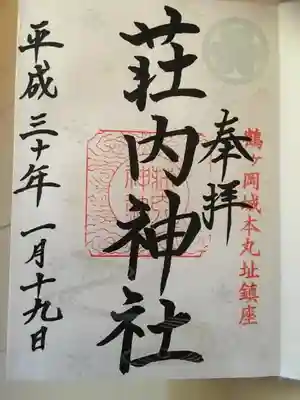 鶴ヶ岡城本丸址鎮座
奉拝
荘内神社
平成三十年一月十九日